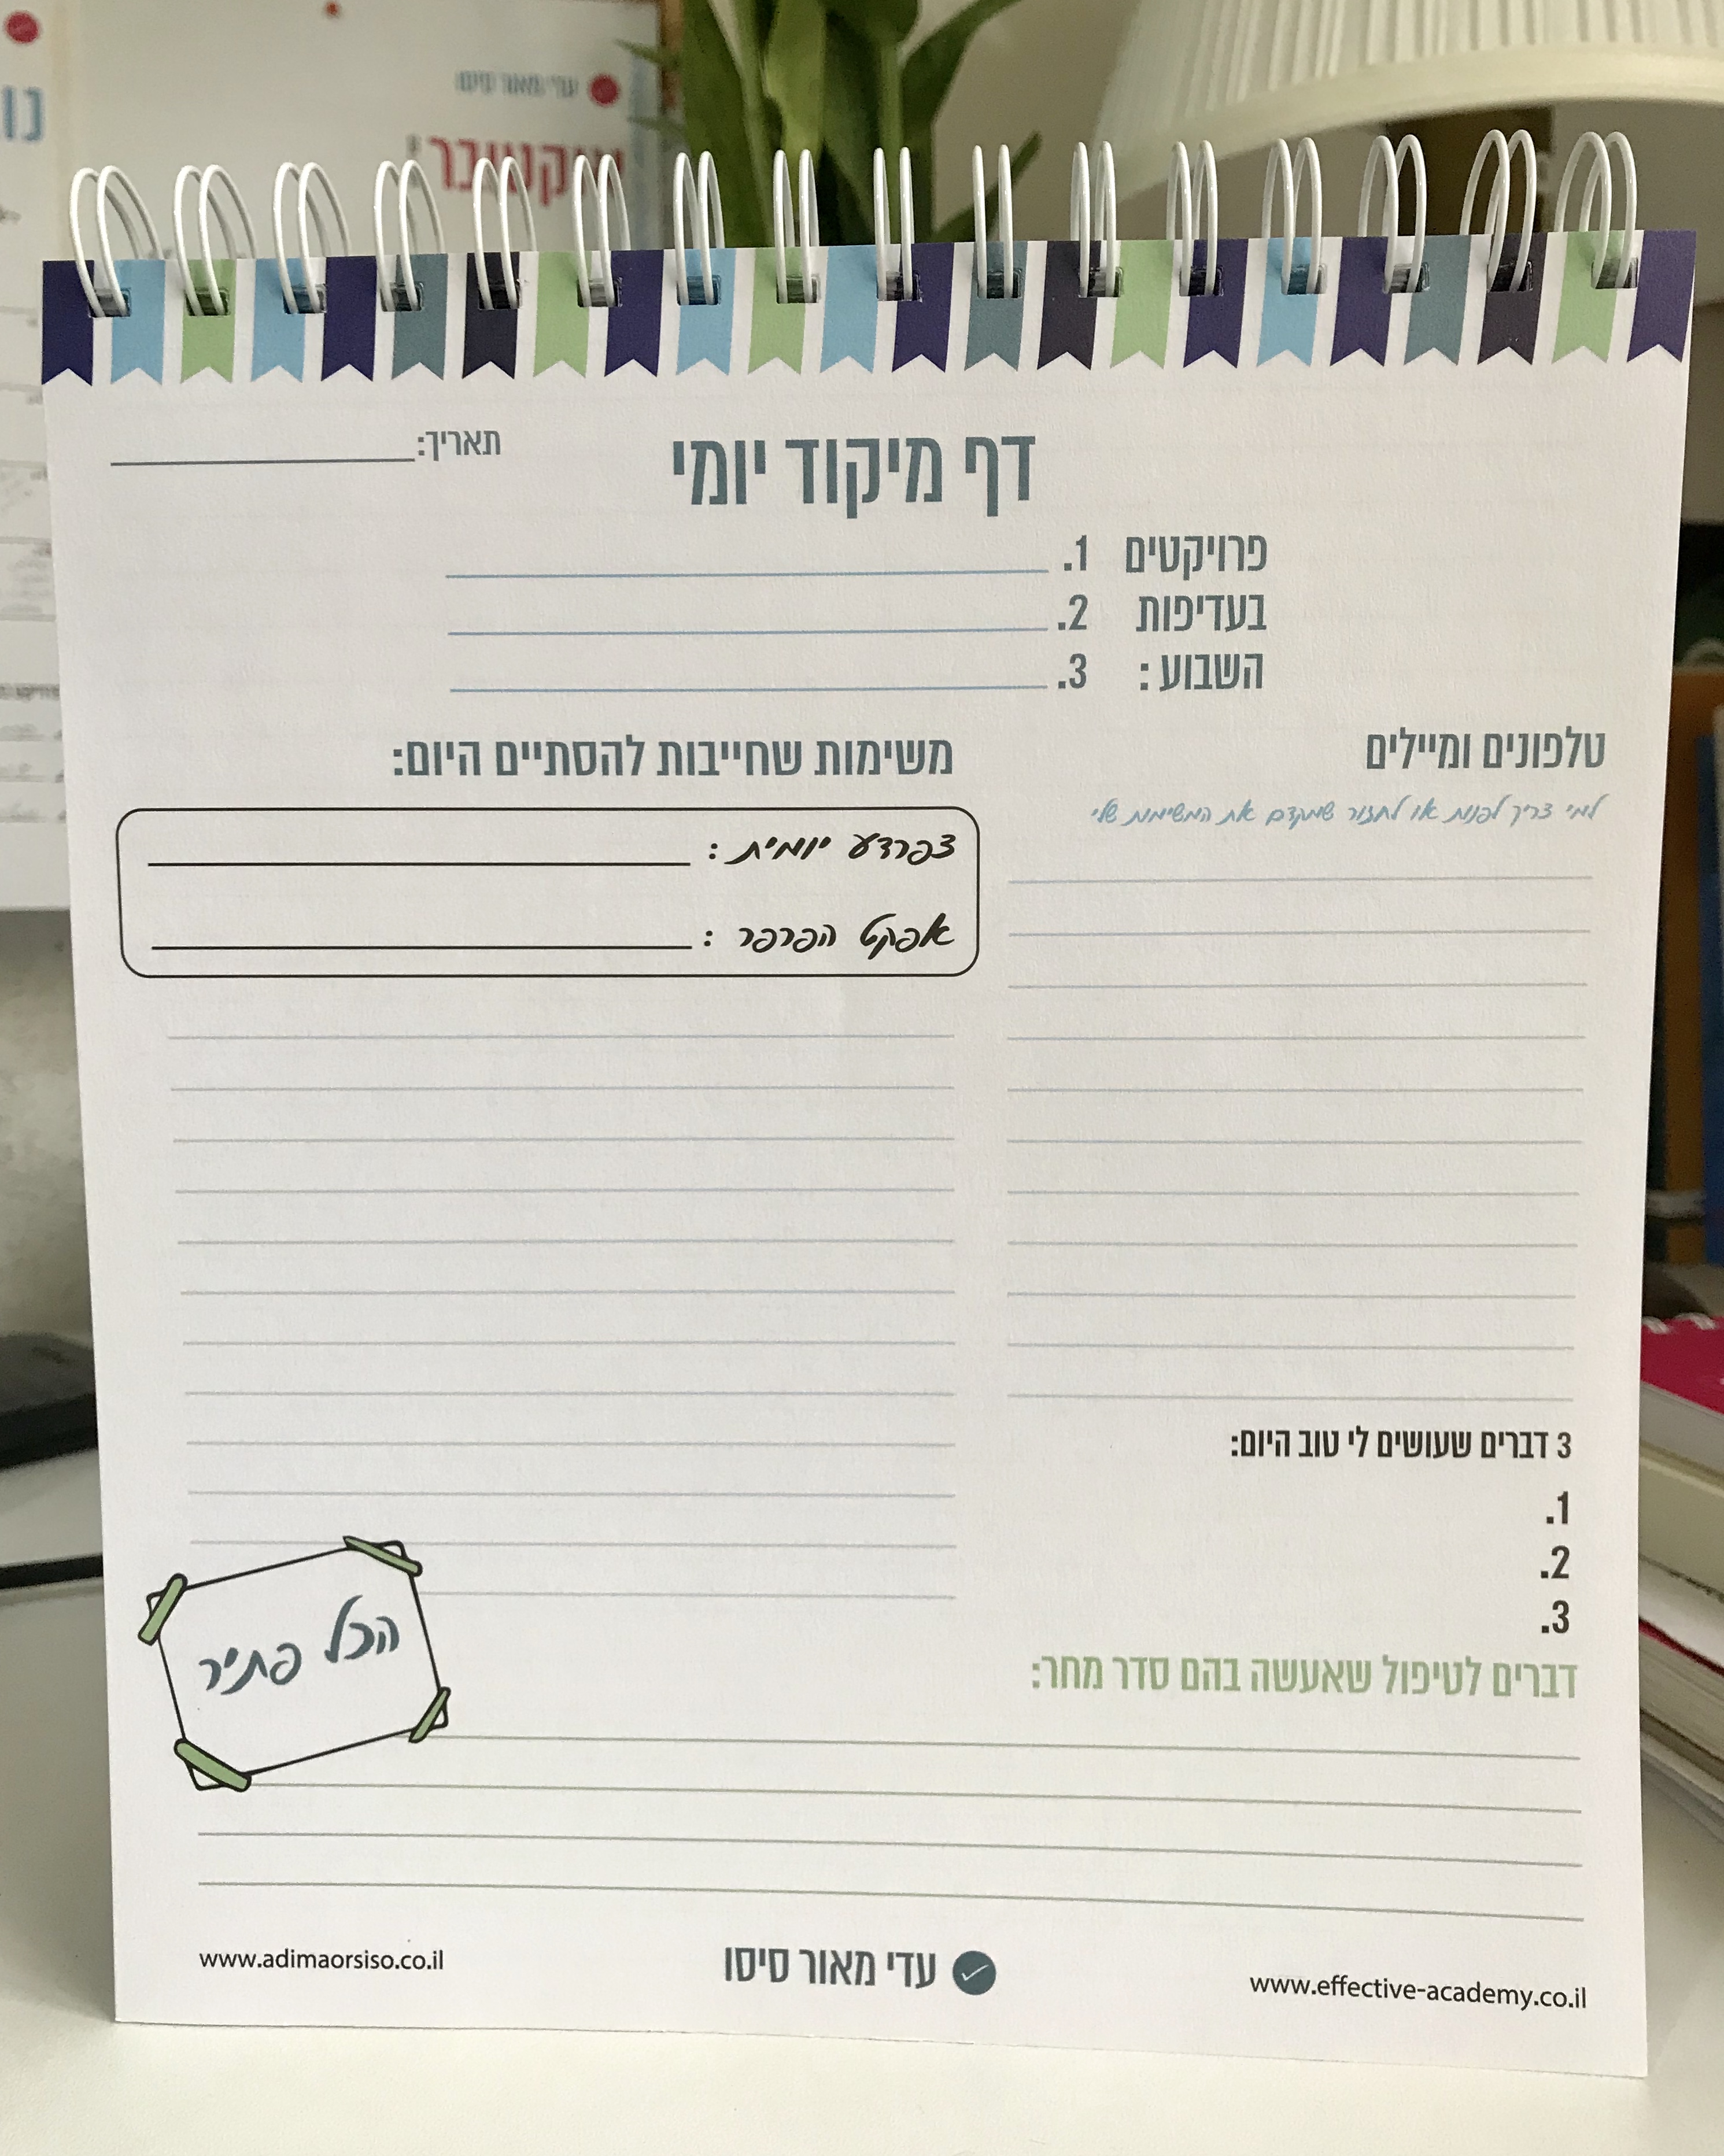 עדי מאור סיסו
אוקטובר
דף מיקוד יומי
תאריך:
פרויקטים 1.
בעדיפות 2.
השבוע: 3.
טלפונים ומיילים
למי צריך לפנות או לחזור שמקדם את המשימות שלי
משימות שחייבות להסתיים היום:
צפרדע יומית:
אפקט הפרפר:
3 דברים שעושים לי טוב היום:
1.
2.
3.
הכל פתיר
דברים לטיפול שאעשה בהם סדר מחר:
www.effective-academy.co.il
עדי מאור סיסו
www.adimaorsiso.co.il